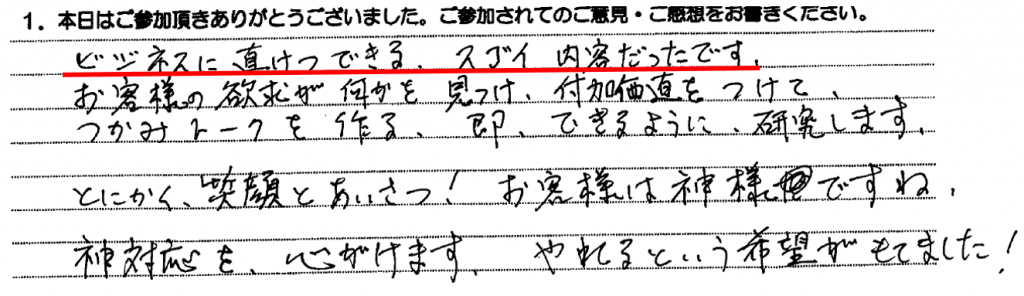 1. 本日はご参加頂きありがとうございました。ご参加されてのご意見・ご感想をお書きください。
ビジネスに直けつできる、スゴイ内容だったです。
お客様の欲求が何かを見つけ、付加価直をつけて、
つかみトークを作る、即、できるように、研究します。
とにかく、笑顔とあいさつ！お客様は神様ですね。
神対応を、心がけます。やれるという希望がもてました！